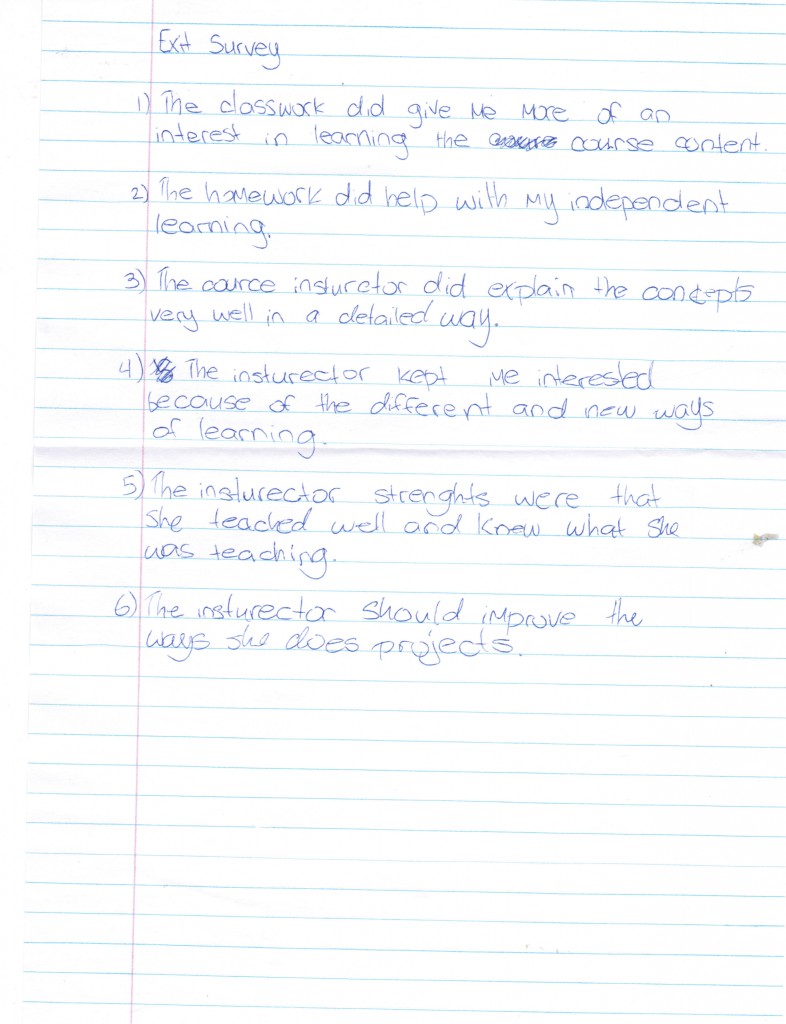 Exit Survey
1) The classwork did give me more of an
interest in learning the course content.
2) The homework did help with my independent
learning.
3) The cource insturctor did explain the concepts
very well in a detailed way.
4) The insturector kept me interested
because of the different and new ways
of learning.
5) The insturector strenghts were that
she teached well and knew what she
was teaching.
6) The insturector should improve the
ways she does projects.